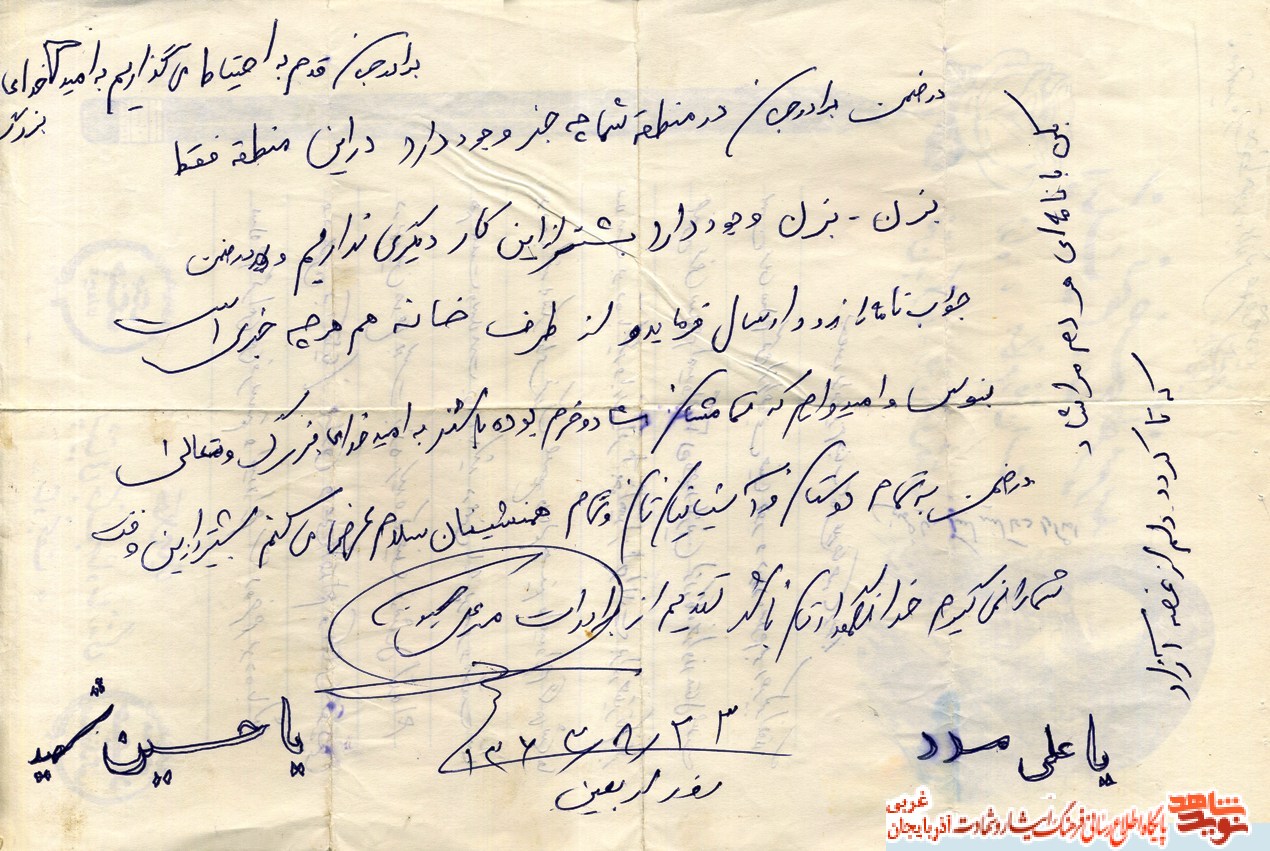 برادرجان قدم به احتیاط می گذاریم به امید خدای
بزرگ
درضمن برادرجان در منطقه شما چه خبر وجود دارد در این منطقه فقط
بزن - بزن وجود دارد بیشتر از این کار دیگری نداریم و درضمن
جواب نامه را زود ارسال فرمایید و از طرف خانه هم هرچه خبری است
بنویس و امیدوارم که تمامشان شاد و خرم بوده باشند به امید خدای بزرگ و متعالی
درضمن به تمام دوستان و آشنایان تان و تمام همنشینان سلام عرض می کنم بیشتر از این وقت
شما را نمی گیرم خدا نگهدارتان باشد تقدیم از برادرت
۱۳۶۳/۸/۲۳
روز اربعین
یا علی مدد
یا حسین شهید
بکن با نامه ای
تا گردد دلم از غصه آزاد
نوید شاهد
پایگاه اطلاع رسانی فرهنگ ایثار و شهادت آذربایجان غربی